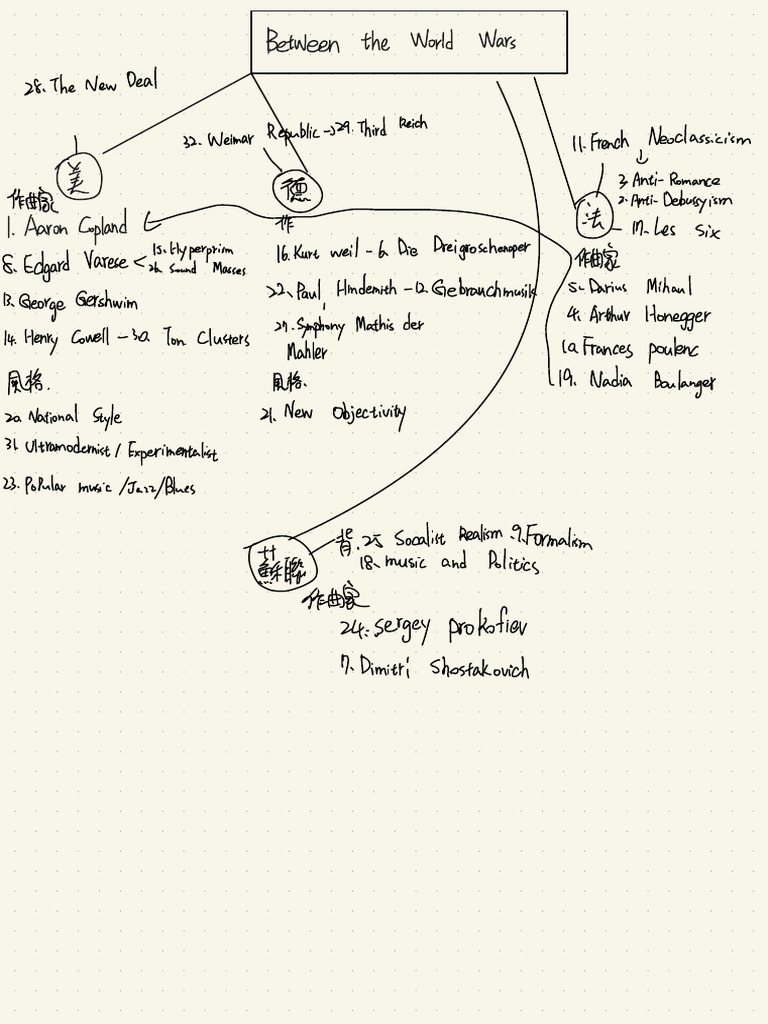 Between the World Wars
28. The New Deal
美
作曲家
1. Aaron Copland
8. Edgard Varese < 15. Hyperprim
26. Sound Masses
13. George Gershwim
14. Henry Cowell - 30. Ton Clusters
風格.
20. National Style
31. Ultramodernist / Experimentalist
23. Popular music / Jazz / Blues
32. Weimar Republic → 29. Third Reich
德
作
16. Kurt weil - 6. Die Dreigroschenoper
22. Paul Hindemith - 12. Gebrauchmusik
27. Symphony Mathis der
Mahler
風格.
21. New Objectivity
11. French Neoclassicism
↓
3. Anti-Romance
2. Anti-Debussyism
法
17. Les Six
作曲家
5. Darius Mihaul
4. Arthur Honegger
10. Frances poulenc
19. Nadia Boulanger
蘇聯
背. 25 Socalist Realism. 9. Formalism
18. music and Politics
作曲家
24. Sergey prokofiev
7. Dimitri Shostakovich